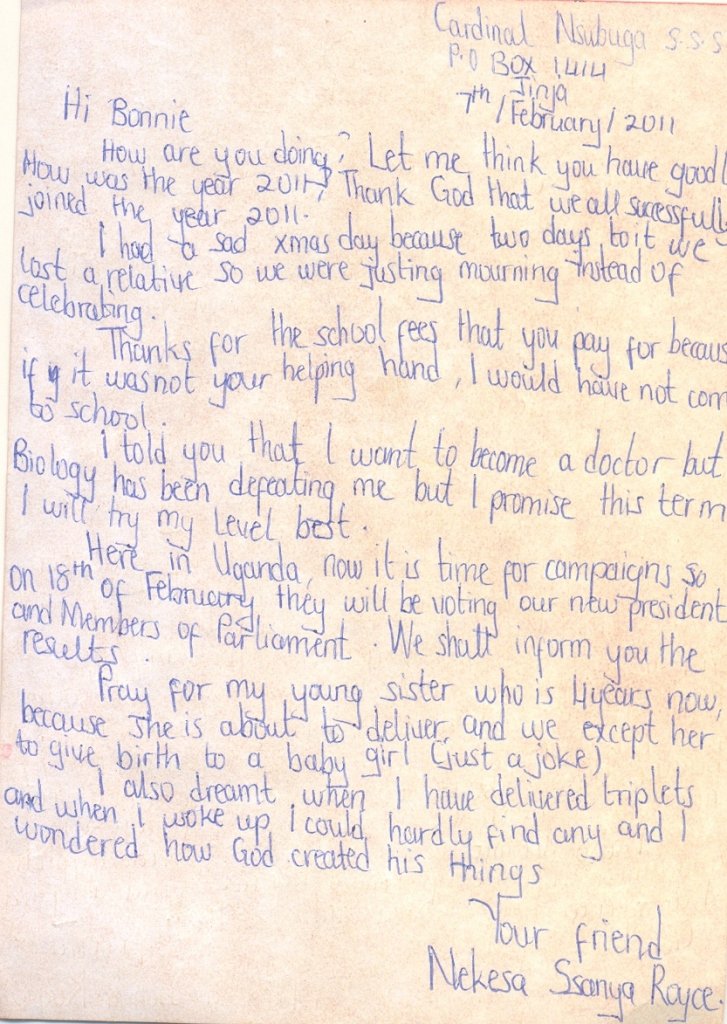 Cardinal Nsubuga S.S.S
P.O BOX 1414
Jinja
7th / February / 2011
Hi Bonnie
How are you doing? Let me think you have good!
How was the year 2011? Thank God that we all successfull
joined the year 2011.
I had a sad xmas day because two days to it we
lost a relative so we were justing mourning instead of
celebrating.
Thanks for the school fees that you pay for becaus
if it was not your helping hand, I would have not com
to school.
I told you that I want to become a doctor but
Biology has been defeating me but I promise this term
I will try my level best.
Here in Uganda, now it is time for campaigns so
on 18th of February they will be voting our new president
and Members of Parliament. We shall inform you the
results.
Pray for my young sister who is 4years now,
because she is about to deliver and we except her
to give birth to a baby girl (just a joke)
I also dreamt when I have delivered triplets
and when I woke up I could hardly find any and I
wondered how God created his things
Your friend
Nekesa Ssanya Royce.